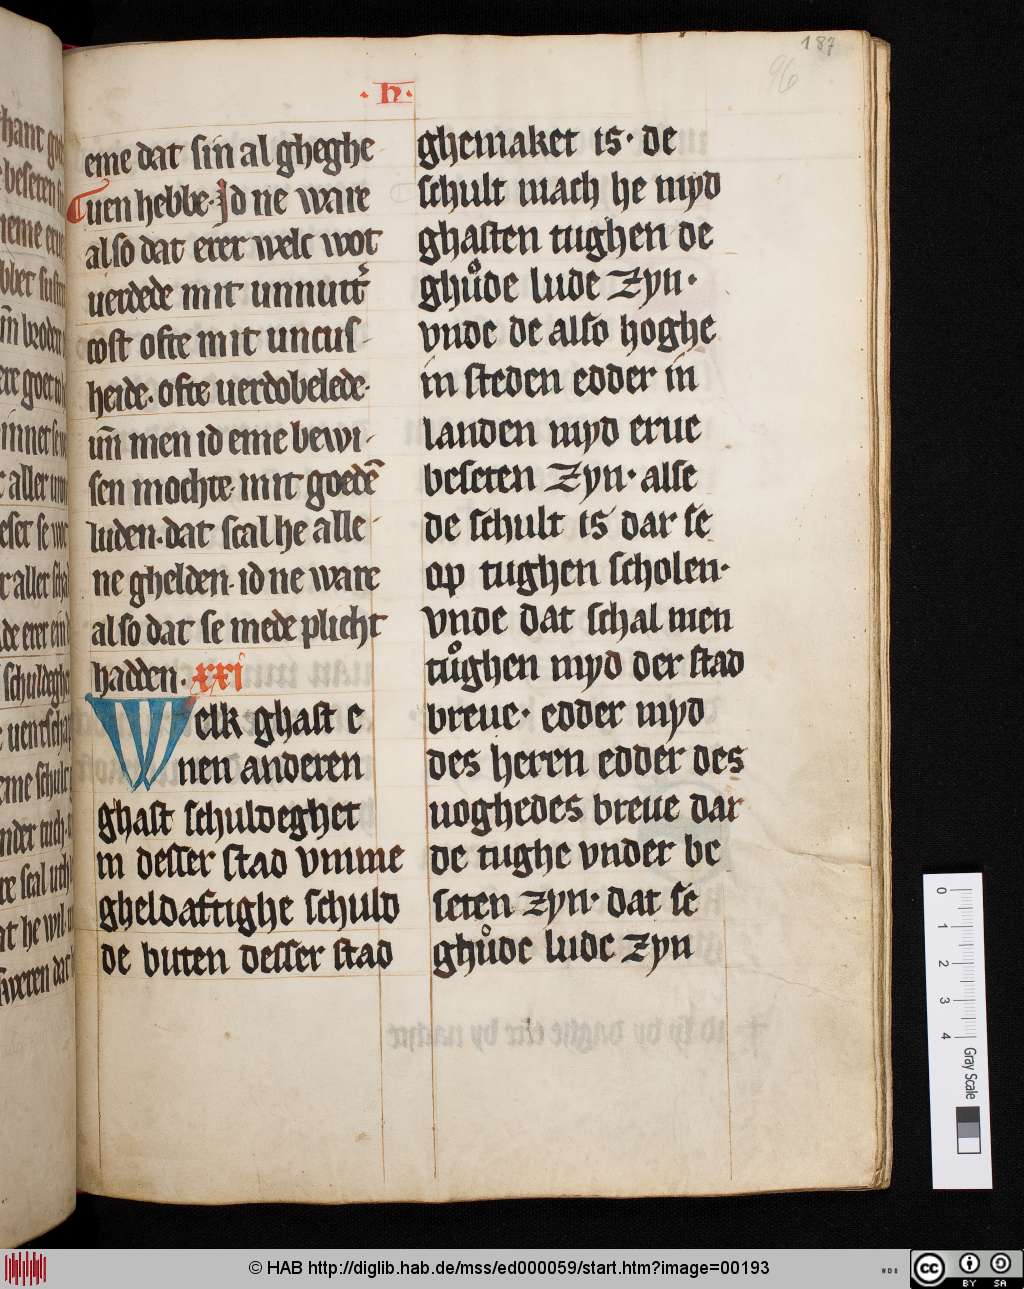 187
96
· h ·
eme dat sin al gheghe
uen hebbe. Id ne ware
also dat erer welc wot
uerdede mit unnutt᷑
cost ofte mit uncus-
heide. ofte uerdobelede.
uñ men id eme bewi-
sen mochte. mit goedē
luden. dat scal he alle-
ne ghelden. id ne ware
also dat se mede plicht
hadden. xxi
Welk ghast e
nen anderen
ghast schuldeghet
in desser stad vmme
gheldaftighe schuld
de buten desser stad
ghemaket is. de
schult mach he myd
ghasten tughen de
ghůde lude zyn.
vnde de also hoghe
in steden edder in
landen myd erue
beseten zyn. alse
de schult is dar se
op tughen scholen.
vnde dat schal men
tůghen myd der stad
breue. edder myd
des heren edder des
uoghedes breue dar
de tughe vnder be
seten zyn. dat se
ghůde lude zyn
0
1
2
3
4
Gray Scale
© HAB http://diglib.hab.de/mss/ed000059/start.htm?image=00193
WDB
cc
BY SA